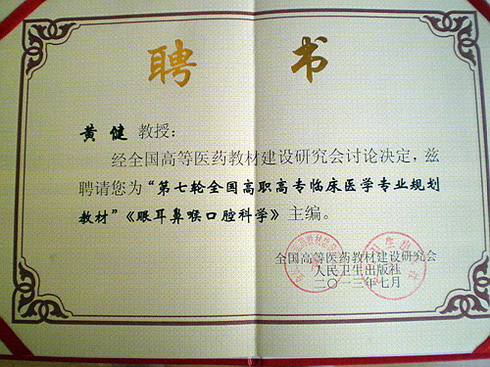 聘 书
黄健 教授：
经全国高等医药教材建设研究会讨论决定，兹
聘请您为“第七轮全国高职高专临床医学专业规划
教材”《眼耳鼻喉口腔科学》主编。
全国高等医药教材建设研究会
人民卫生出版社
二〇一三年七月